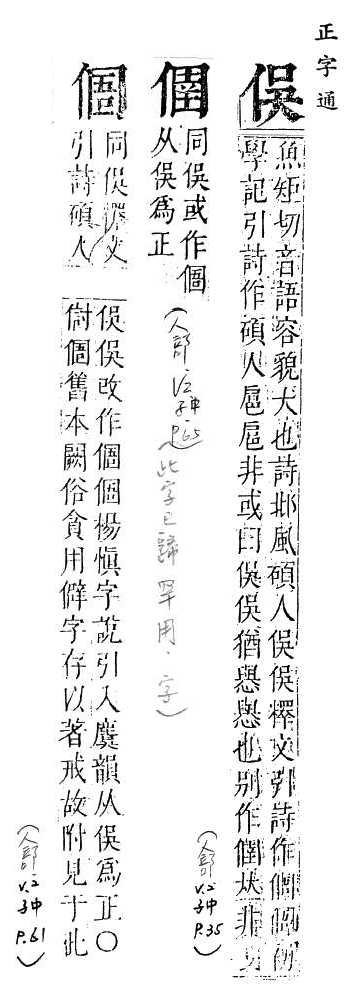 正字通
俁
魚矩切音語容貌大也詩邶風碩人俁俁釋文引詩作
學記引詩作碩人扈扈非或曰俁俁猶也別作非
同俁或作
从俁爲正
(人部 V.2 子中 P.65 此字已歸罕用字)
(人部 V.2 子中 P.35)
同俁釋文
引詩碩人
俁俁改作楊慎字說引入麌韻从俁爲正○
舊本闕俗貪用僻字存以著戒故附見于此
(人部 V.2 子中 P.61)